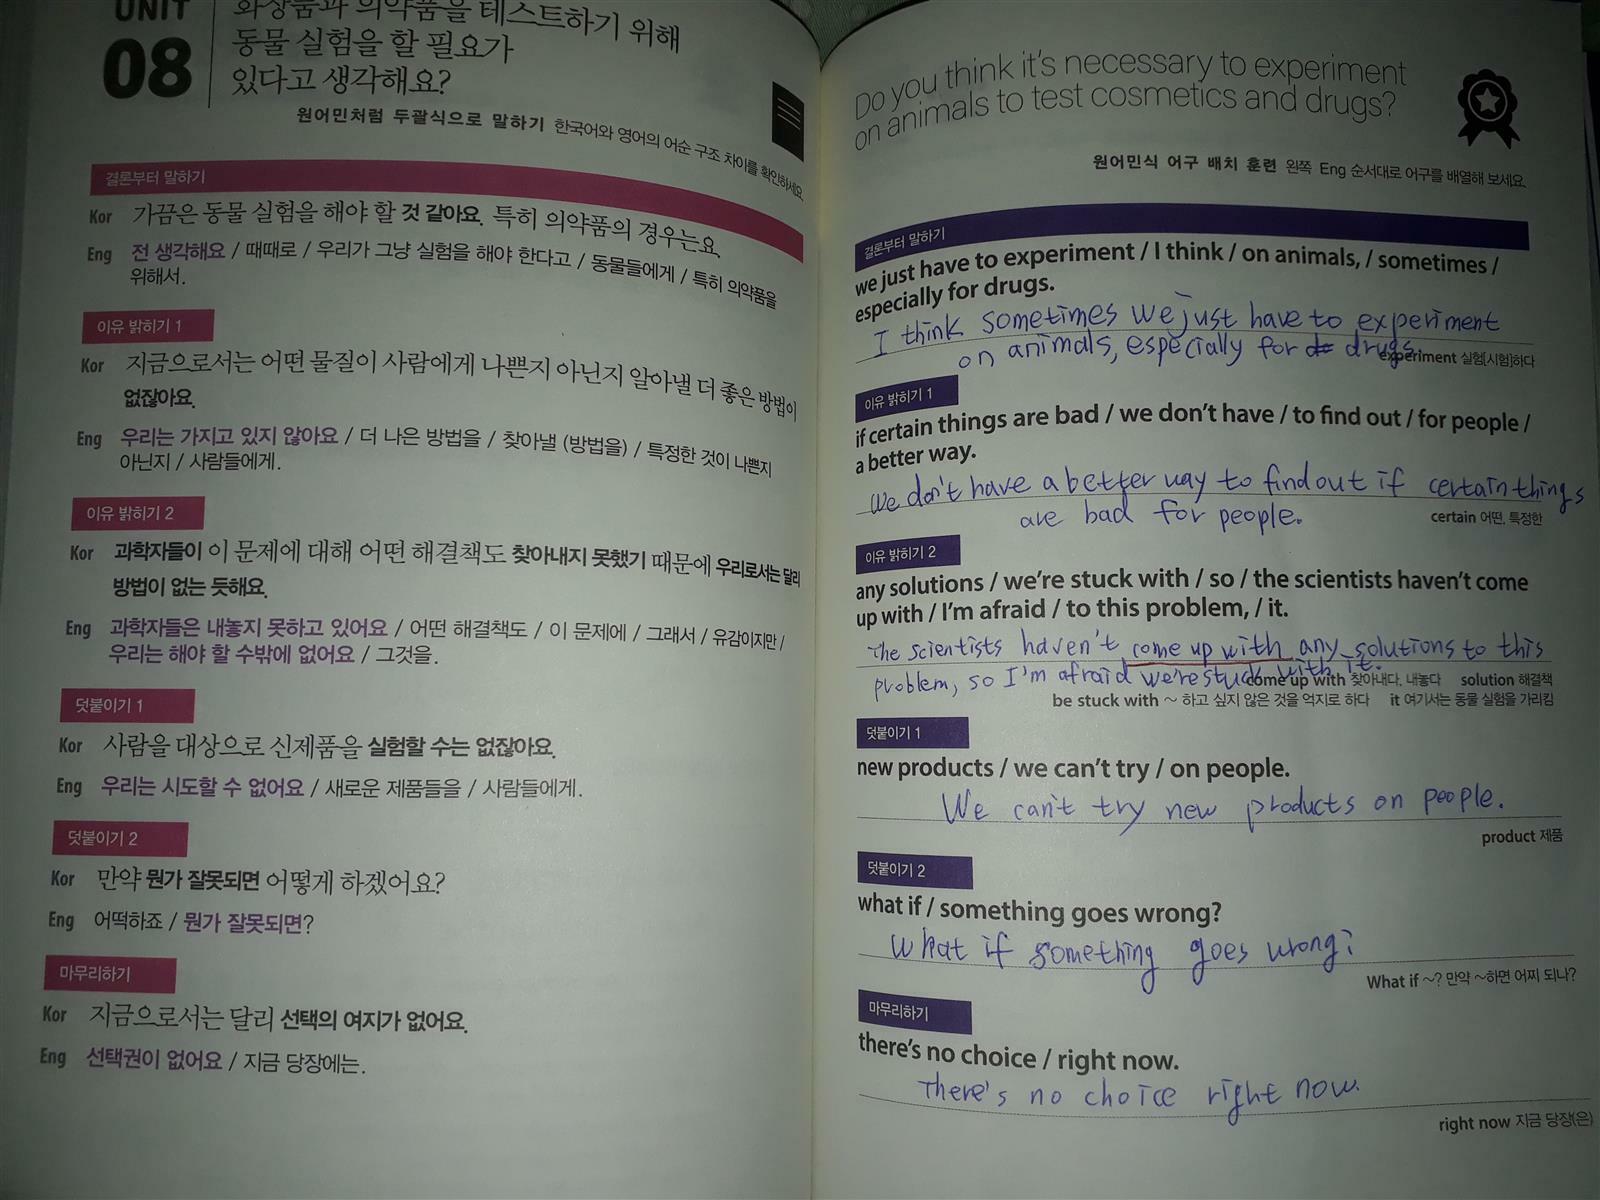 UNIT
08
화장품과 의약품을 테스트하기 위해
동물 실험을 할 필요가
있다고 생각해요?
원어민처럼 두괄식으로 말하기 한국어와 영어의 어순 구조 차이를 확인하세요.
결론부터 말하기
Kor 가끔은 동물 실험을 해야 할 것 같아요. 특히 의약품의 경우는요.
Eng 전 생각해요 / 때때로 / 우리가 그냥 실험을 해야 한다고 / 동물들에게 / 특히 의약품을
위해서.
이유 밝히기 1
Kor 지금으로서는 어떤 물질이 사람에게 나쁜지 아닌지 알아낼 더 좋은 방법이
없잖아요.
Eng 우리는 가지고 있지 않아요 / 더 나은 방법을 / 찾아낼 (방법을) / 특정한 것이 나쁜지
아닌지 / 사람들에게.
이유 밝히기 2
Kor 과학자들이 이 문제에 대해 어떤 해결책도 찾아내지 못했기 때문에 우리로서는 달리
방법이 없는 듯해요.
Eng 과학자들은 내놓지 못하고 있어요 / 어떤 해결책도 / 이 문제에 / 그래서 / 유감이지만 /
우리는 해야 할 수밖에 없어요 / 그것을.
덧붙이기 1
Kor 사람을 대상으로 신제품을 실험할 수는 없잖아요.
Eng 우리는 시도할 수 없어요 / 새로운 제품들을 / 사람들에게.
덧붙이기 2
Kor 만약 뭔가 잘못되면 어떻게 하겠어요?
Eng 어떡하죠 / 뭔가 잘못되면?
마무리하기
Kor 지금으로서는 달리 선택의 여지가 없어요.
Eng 선택권이 없어요 / 지금 당장에는.
Do you think it's necessary to experiment
on animals to test cosmetics and drugs?
원어민식 어구 배치 훈련 왼쪽 Eng 순서대로 어구를 배열해 보세요.
결론부터 말하기
we just have to experiment / I think / on animals, / sometimes /
especially for drugs.
I think sometimes we just have to experiment
on animals, especially for drugs.
experiment 실험[시험]하다
이유 밝히기 1
if certain things are bad / we don't have / to find out / for people /
a better way.
We don't have a better way to find out if certain things
are bad for people.
certain 어떤, 특정한
이유 밝히기 2
any solutions / we're stuck with / so / the scientists haven't come
up with / I'm afraid / to this problem, / it.
The scientists haven't come up with any solutions to this
problem, so I'm afraid we're stuck with it.
come up with 찾아내다, 내놓다 solution 해결책
be stuck with ~ 하고 싶지 않은 것을 억지로 하다 it 여기서는 동물 실험을 가리킴
덧붙이기 1
new products / we can't try / on people.
We can't try new products on people.
product 제품
덧붙이기 2
what if / something goes wrong?
What if something goes wrong?
What if ~? 만약 ~하면 어찌 되나?
마무리하기
there's no choice / right now.
There's no choice right now.
right now 지금 당장(은)